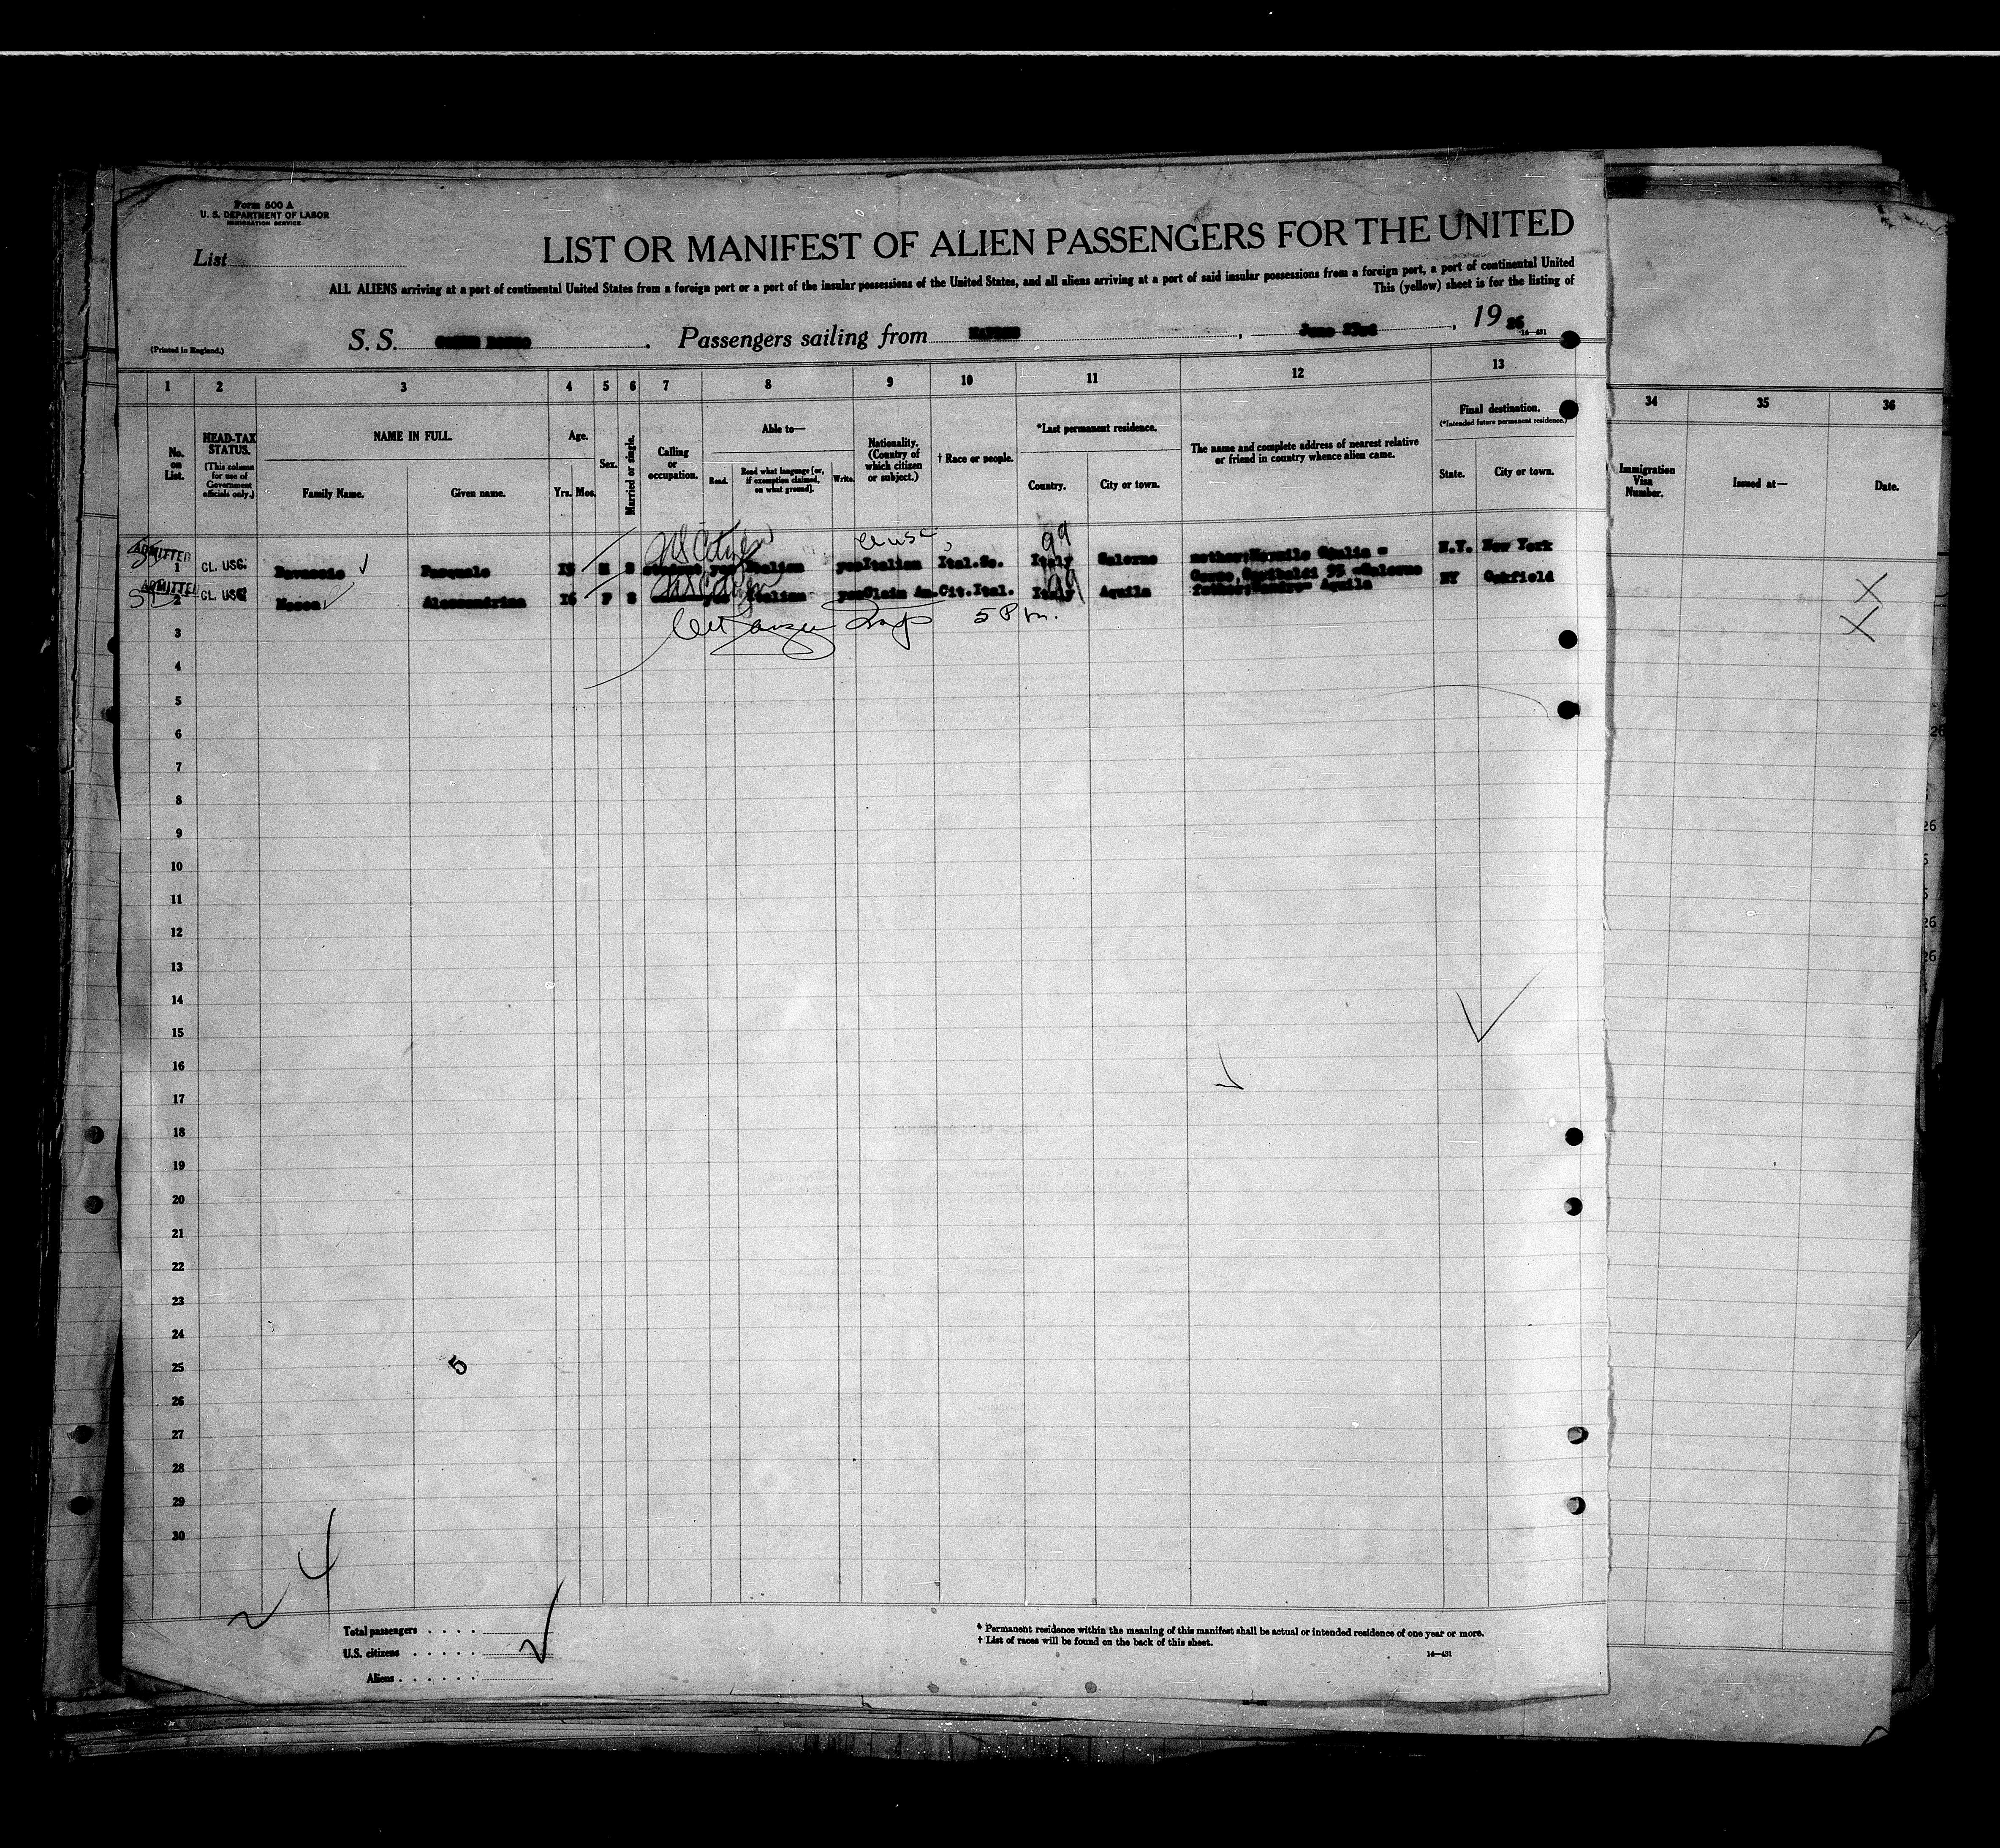 Form 500 A
U. S. DEPARTMENT OF LABOR
IMMIGRATION SERVICE
List
LIST OR MANIFEST OF ALIEN PASSENGERS FOR THE UNITED
ALL ALIENS arriving at a port of continental United States from a foreign port or a port of the insular possessions of the United States, and all aliens arriving at a port of said insular possessions from a foreign port, a port of continental United
This (yellow) sheet is for the listing of
(Printed in England.)
S. S. . Passengers sailing from NAPLES , June 23rd , 19 26
16—431
1 2 3 4 5 6 7 8 9 10 11 12 13
34 35 36
No. on List.
HEAD-TAX STATUS.
(This column for use of Government officials only.)
NAME IN FULL.
Family Name. Given name.
Age.
Yrs. Mos.
Sex.
Married or single.
Calling or occupation.
Able to—
Read. Read what language [or, if exemption claimed, on what ground]. Write.
Nationality. (Country of which citizen or subject.)
† Race or people.
*Last permanent residence.
Country. City or town.
The name and complete address of nearest relative or friend in country whence alien came.
Final destination.
(*Intended future permanent residence.)
State. City or town.
Immigration Visa Number.
Issued at—
Date.
ADMITTED 1 CL. USC. Pasquale M S student yes Italian yes Italian Ital.So. Italy Salerno mother: N.Y. New York
Corso Garibaldi 95 Salerno
ADMITTED 2 CL. USC Alessandrina 16 F S yes Italian yes Claim Am.Cit. Ital. Italy Aquila father: Aquila NY Oakfield
US Citizen
US Citizen
99
99
5 Pm.
3
4
5
6
7
8
9
10
11
12
13
14
15
16
17
18
19
20
21
22
23
24
25
26
27
28
29
30
5
4
Total passengers . . . .
U.S. citizens . . . . .
Aliens . . . . . .
* Permanent residence within the meaning of this manifest shall be actual or intended residence of one year or more.
† List of races will be found on the back of this sheet.
16—431